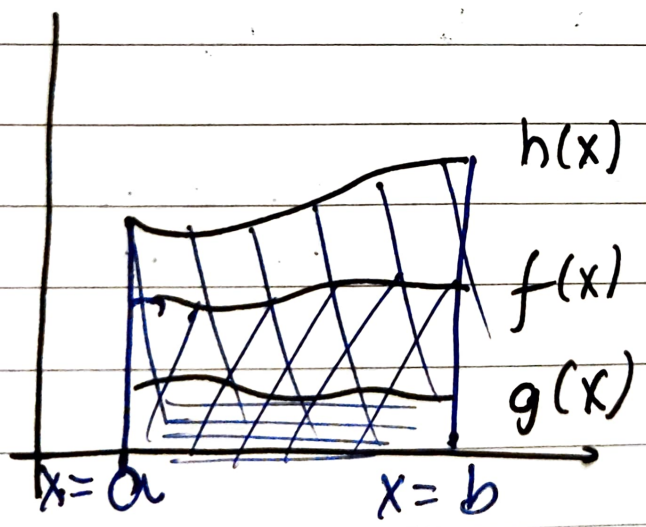 h(x)
f(x)
g(x)
x = a x = b